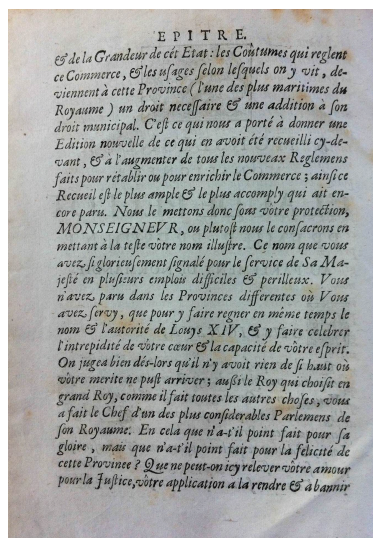 EPITRE.
& de la Grandeur de cét Etat: les Coûtumes qui reglent
ce Commerce, & les usages selon lesquels on y vit, de-
viennent à cette Province (l'une des plus maritimes du
Royaume) un droit necessaire & une addition à son
droit municipal. C'est ce qui nous a porté à donner une
Edition nouvelle de ce qui en avoit été recueilli cy-de-
vant, & à l'augmenter de tous les nouveax Reglemens
faits pour rétablir ou pour enrichir le Commerce; ainsi ce
Recueil est le plus ample & le plus accomply qui ait en-
core paru. Nous le mettons donc soas vôtre protection,
MONSEIGNEVR, ou plutost nous le consacrons en
mettant à la teste vôtre nom illustre. Ce nom que vous
avez si glorieusement signalé pour le service de Sa Ma-
jesté en plusieurs emplois difficiles & perilleux. Vous
n'avez paru dans les Provinces differentes où Vous
avez servy, que pour y faire regner en même temps le
nom & l'autorité de Louys XIV, & y faire celebrer
l'intrepidité de vôtre cœur & la capacité de vôtre esprit.
On jugea bien dés-lors qu'il n'y avoit rien de si haut où
vôtre merite ne pust arriver; aussi le Roy qui choisit en
grand Roy, comme il fait toutes les autres choses, vous
a fait le Chef d'un des plus considerables Parlemens de
son Royaume. En cela que n'a-t'il point fait pour sa
gloire, mais que n'a-t'il point fait pour la felicité de
cette Province? Que ne peut-on icy relever vôtre amour
pour la Justice, vôtre application a la rendre & à bannir